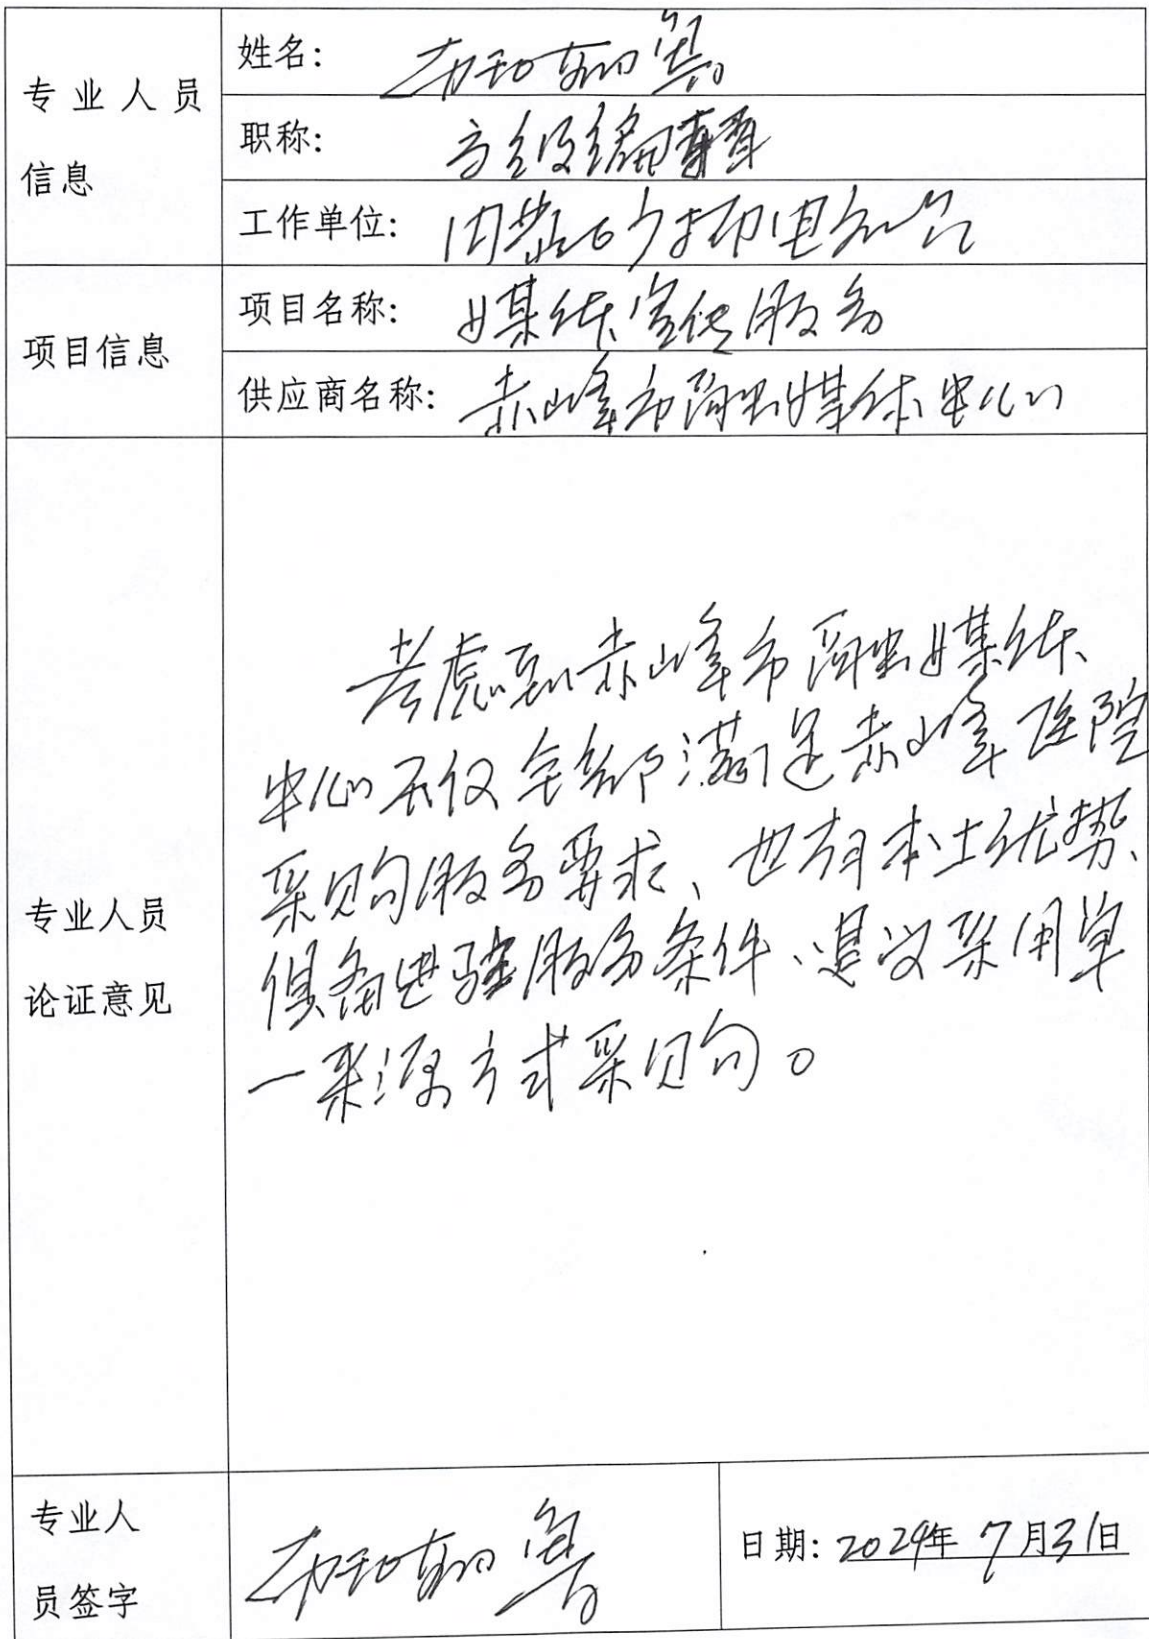 专业人员
信息
姓名:
职称: 高级编辑
工作单位: 内蒙古广播电视台
项目信息
项目名称: 媒体宣传服务
供应商名称: 赤峰市融媒体中心
专业人员
论证意见
考虑到赤峰市融媒体
中心不仅全部满足赤峰医院
采购服务要求、也有本土优势、
俱备进驻服务条件、建议采用单
一来源方式采购。
专业人
员签字
日期: 2024年7月31日